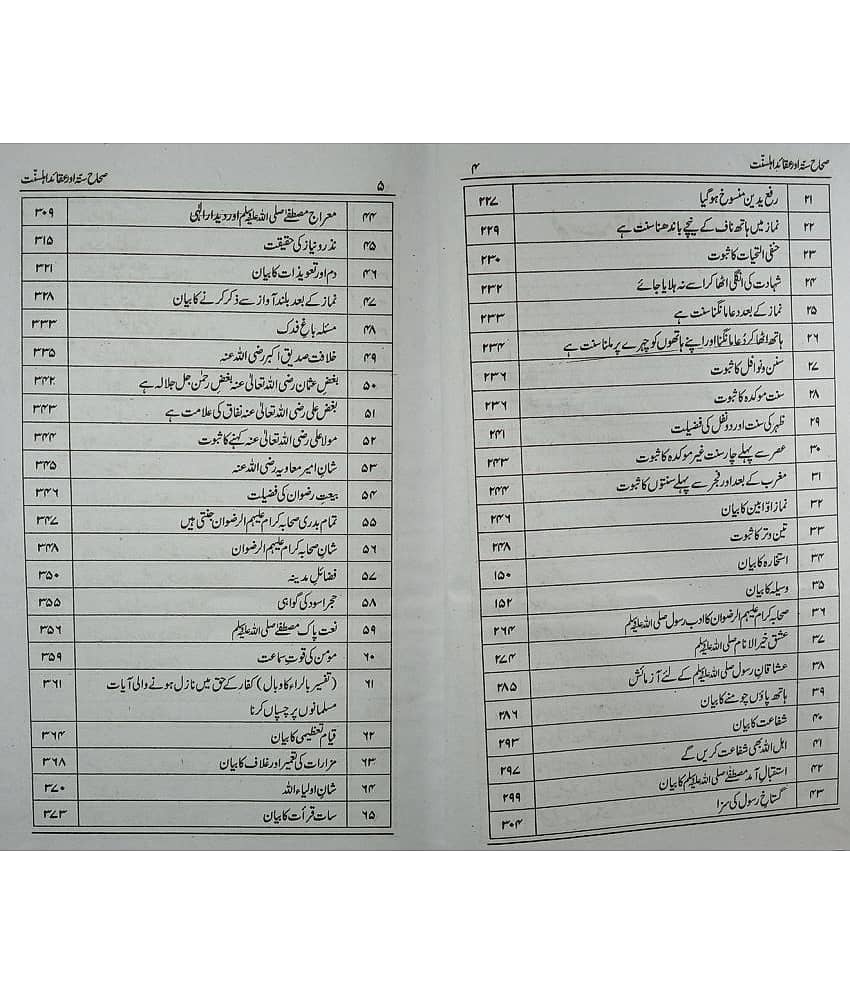 ۴ صحاح ستہ اور عقائد اہلسنّت
۲۱ رفع یدین منسوخ ہوگیا ۲۲۷
۲۲ نماز میں ہاتھ ناف کے نیچے باندھنا سنت ہے ۲۲۹
۲۳ حنفی التحیات کا ثبوت ۲۳۰
۲۴ شہادت کی انگلی اٹھا کر اسے نہ ہلایا جائے ۲۳۲
۲۵ نماز کے بعد دعا مانگنا سنت ہے ۲۳۳
۲۶ ہاتھ اٹھا کر دُعا مانگنا اور اپنے ہاتھوں کو چہرے پر ملنا سنت ہے ۲۳۴
۲۷ سنن ونوافل کا ثبوت ۲۳۶
۲۸ سنت موکدہ کا ثبوت ۲۳۶
۲۹ ظہر کی سنت اور دو نفل کی فضیلت ۲۴۱
۳۰ عصر سے پہلے چار سنت غیر موکدہ کا ثبوت ۲۴۳
۳۱ مغرب کے بعد اور فجر سے پہلے سنتوں کا ثبوت ۲۴۴
۳۲ نماز اوّابین کا بیان ۲۴۶
۳۳ تین وتر کا ثبوت ۲۴۸
۳۴ استخارہ کا بیان ۱۵۰
۳۵ وسیلہ کا بیان ۱۵۲
۳۶ صحابہ کرام علیہم الرضوان کا ادب رسول صلی اللہ علیہ وسلم ۲۶۴
۳۷ عشق خیر الانام صلی اللہ علیہ وسلم ۲۷۴
۳۸ عشاقان رسول صلی اللہ علیہ وسلم کے لئے آزمائش ۲۸۵
۳۹ ہاتھ پاؤں چومنے کا بیان ۲۸۶
۴۰ شفاعت کا بیان ۲۹۳
۴۱ اہل اللہ بھی شفاعت کریں گے ۲۹۷
۴۲ استقبال آمد مصطفےٰ صلی اللہ علیہ وسلم کا بیان ۲۹۹
۴۳ گستاخ رسول کی سزا ۳۰۴
۵ صحاح ستہ اور عقائد اہلسنّت
۴۴ معراج مصطفےٰ صلی اللہ علیہ وسلم اور دیدار الٰہی ۳۰۹
۴۵ نذر ونیاز کی حقیقت ۳۱۵
۴۶ دم اور تعویذات کا بیان ۳۲۱
۴۷ نماز کے بعد بلند آواز سے ذکر کرنے کا بیان ۳۲۸
۴۸ مسئلہ باغ فدک ۳۳۳
۴۹ خلافت صدیق اکبر رضی اللہ عنہ ۲۳۵
۵۰ بغض عثمان رضی اللہ تعالیٰ عنہ بغض رحمٰن جل جلالہ ہے ۳۴۲
۵۱ بغض علی رضی اللہ تعالیٰ عنہ نفاق کی علامت ہے ۳۴۳
۵۲ مولا علی رضی اللہ تعالیٰ عنہ کہنے کا ثبوت ۳۴۴
۵۳ شان امیر معاویہ رضی اللہ عنہ ۳۴۵
۵۴ بیعت رضوان کی فضیلت ۳۴۶
۵۵ تمام بدری صحابہ کرام علیہم الرضوان جنتی ہیں ۳۴۷
۵۶ شان صحابہ کرام علیہم الرضوان ۳۴۸
۵۷ فضائل مدینہ ۳۵۰
۵۸ حجر اسود کی گواہی ۳۵۵
۵۹ نعت پاک مصطفےٰ صلی اللہ علیہ وسلم ۳۵۶
۶۰ مومن کی قوتِ سماعت ۳۵۹
۶۱ (تفسیر بالراء کا وبال) کفار کے حق میں نازل ہونے والی آیات ۳۶۱
مسلمانوں پر چسپاں کرنا
۶۲ قیام تعظیمی کا بیان ۳۶۴
۶۳ مزارات کی تعمیر اور غلاف کا بیان ۳۶۸
۶۴ شان اولیاء اللہ ۳۷۰
۶۵ سات قرأت کا بیان ۳۷۳